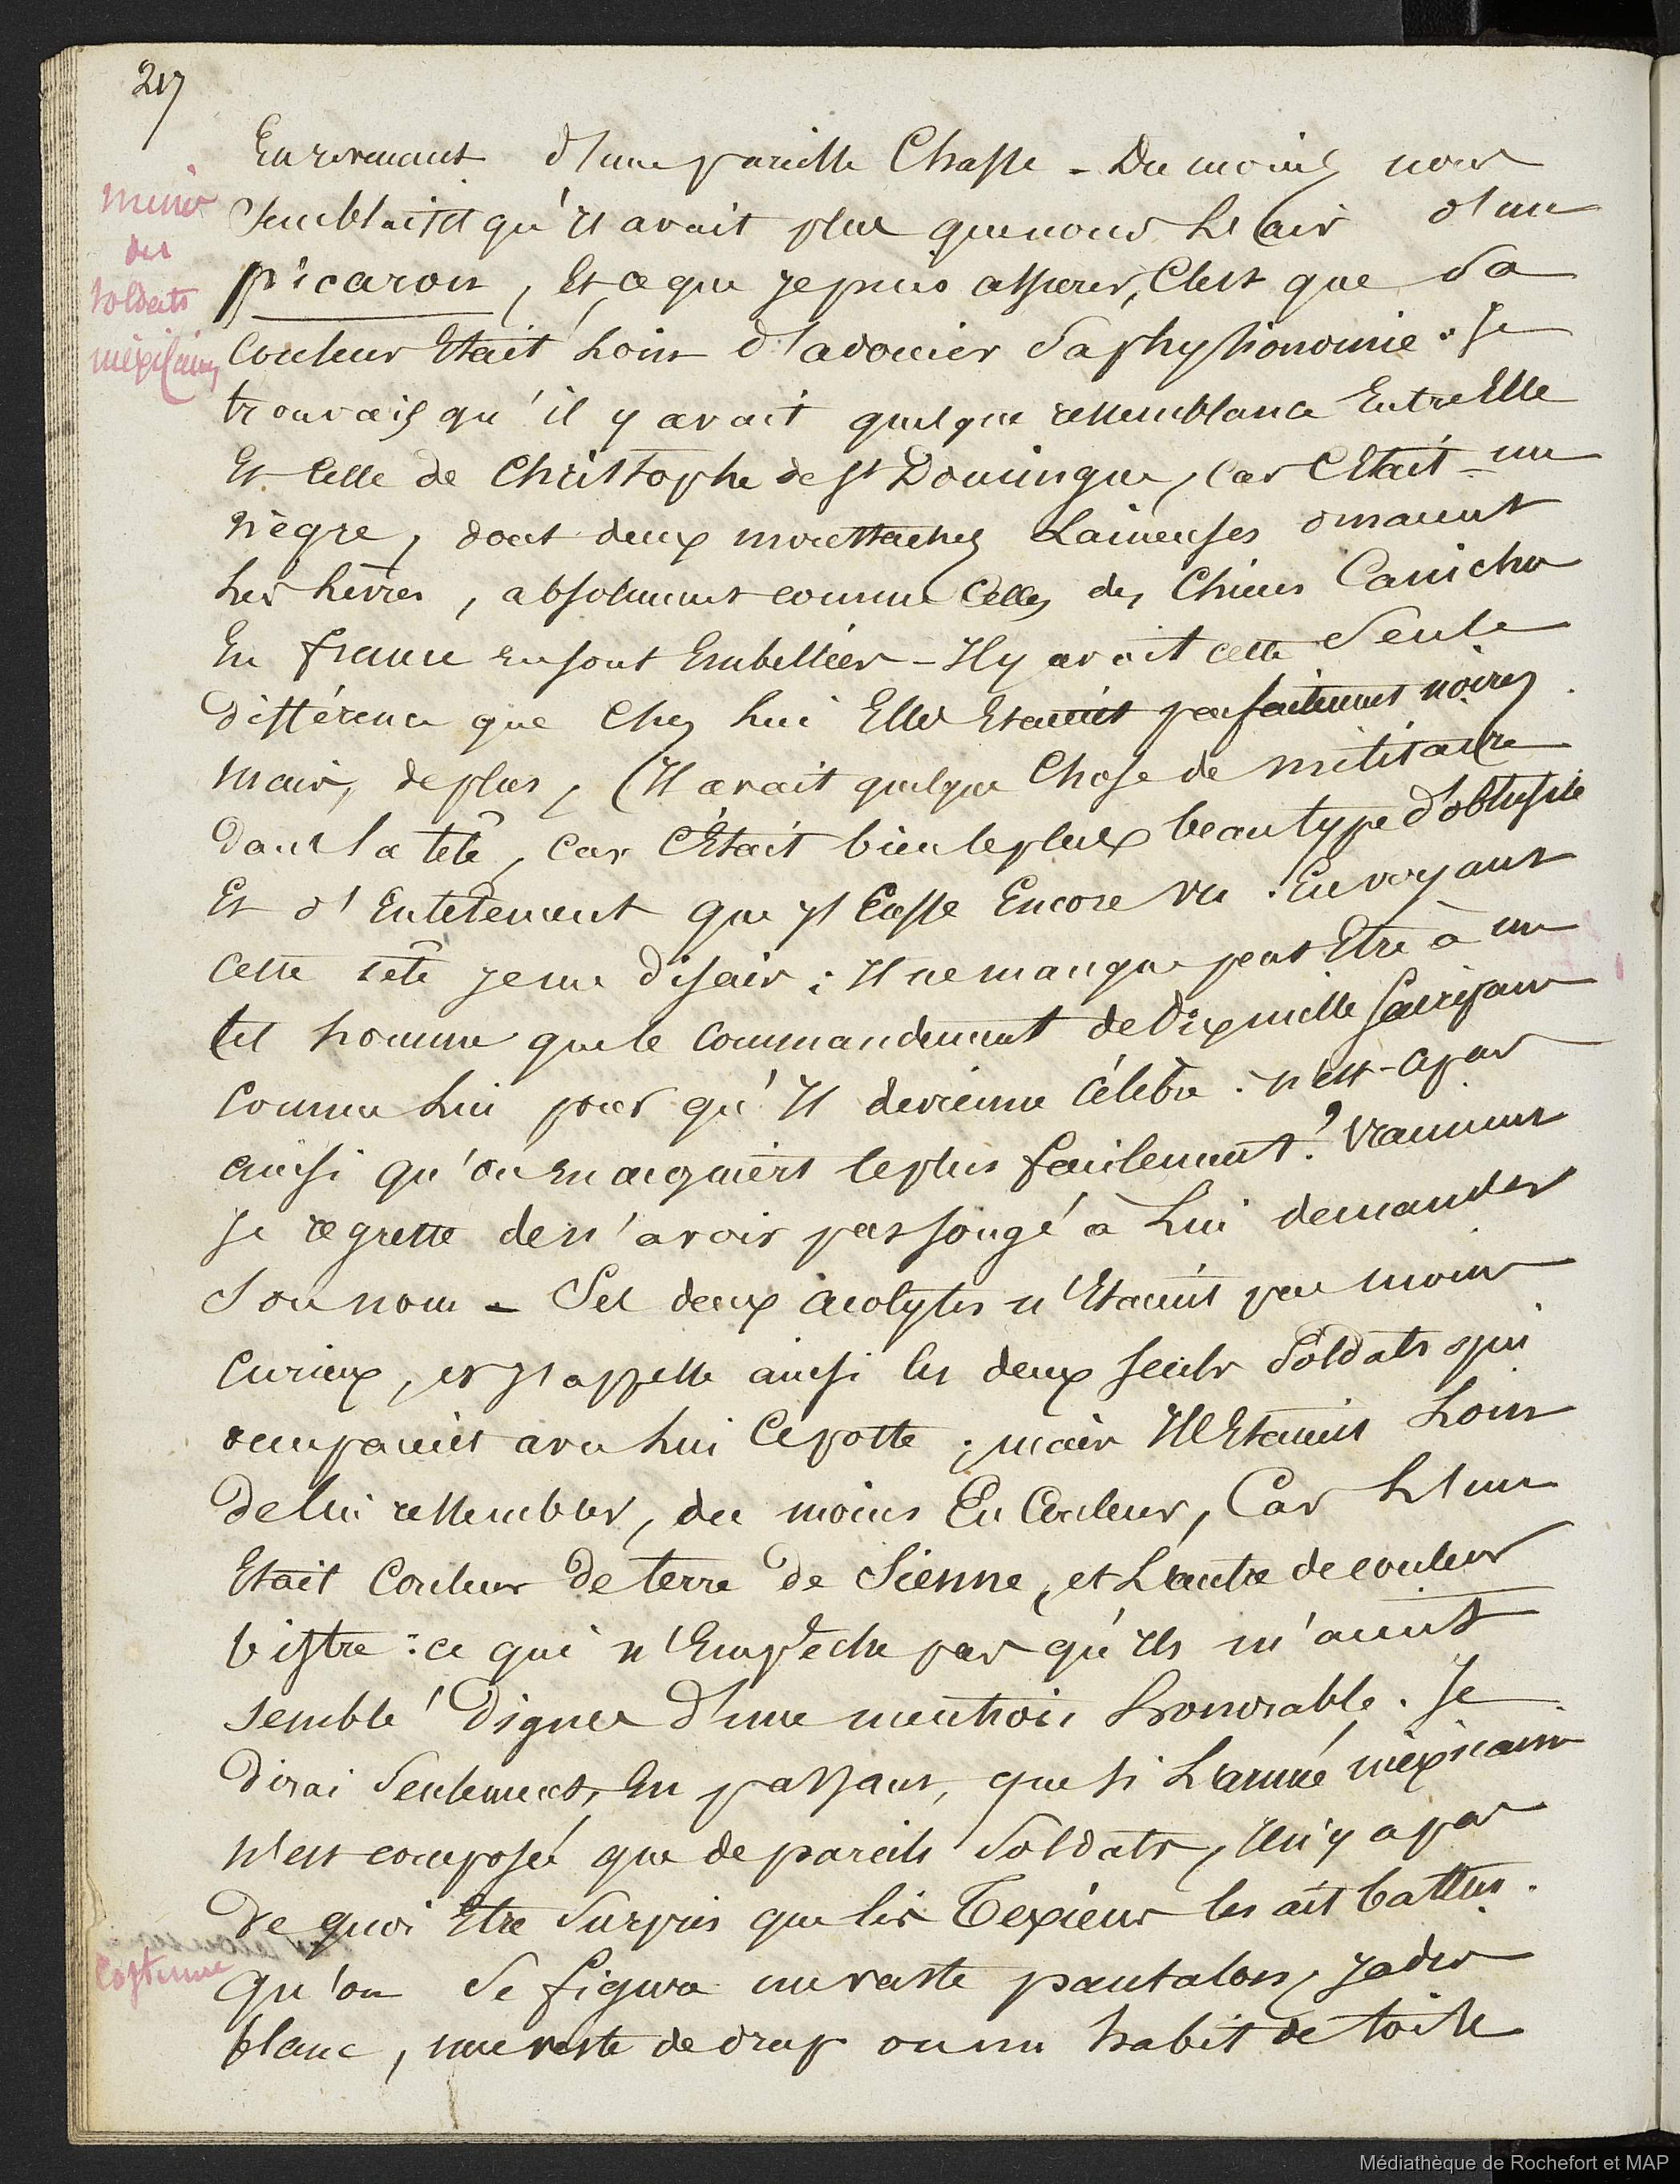 217
En revenant d'une pareille Chasse - Du moins nous
mine
des
soldats
mexicains
semblait il qu'il avait plus que nous l'air d'un
picaron, Et ce que je puis assurer, C'est que sa
couleur Etait loin d'adoucir sa physionomie. Je
trouvais qu'il y avait quelque ressemblance Entr'elle
Et celle de Christophe de St Domingue, car C'Etait un
nègre, dont deux moustaches Laineuses ornaient
les lèvres, absolument comme Celles des Chiens Caniches
En france en sont Embellies - Il y avait cette seule
différence que Chez lui Elles Etaient parfaitement noires
mais, de plus, Il avait quelque Chose de militaire
dans la tête, car C'Etait bien le plus beau type d'obtusité
Et d'Entêtement que j'Eusse Encore vu. En voyant
cette tête je me disais : Il ne manque peut Etre à un
tel homme que le commandement de dix mille
comme lui pour qu'Il devienne célèbre. n'est-ce pas
ainsi qu'on en acquiert le plus facilement ? vraiment
je regrette de n'avoir pas songé à Lui demander
son nom - Ses deux acolytes n'Etaient pas moins
curieux, et j'appelle ainsi les deux seuls soldats qui
occupaient avec lui Ce poste ; mais Ils Etaient loin
de lui ressembler, du moins En Couleur, Car l'un
Etait Couleur de terre de Sienne, et L'autre de couleur
bistre : ce qui n'Empêche pas qu'ils m'aient
semblé Dignes d'une mention honorable. Je
dirai seulement, En passant, que si L'armée mexicaine
n'est composée que de pareils soldats, Il n'y a pas
de quoi Etre surpris que les Texiens les ait battus.
Costume
Qu'on se figure un vaste pantalon, jadis
blanc, une veste de drap ou un habit de toile
Médiathèque de Rochefort et MAP